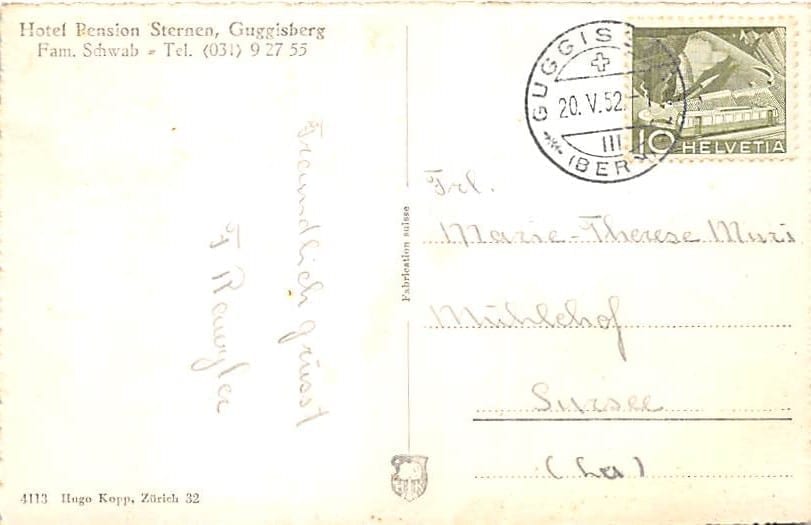 Hotel Pension Sternen, Guggisberg
Fam. Schwab - Tel. (031) 9 27 55
Freundlich grüsst
F
GUGGIS
20. V. 52.
III
(BERN)
10 HELVETIA
Fabrication suisse
Frl.
Marie-Therese Muri
Mühlehof
Sursee
(Lu)
4113 Hugo Kopp, Zürich 32